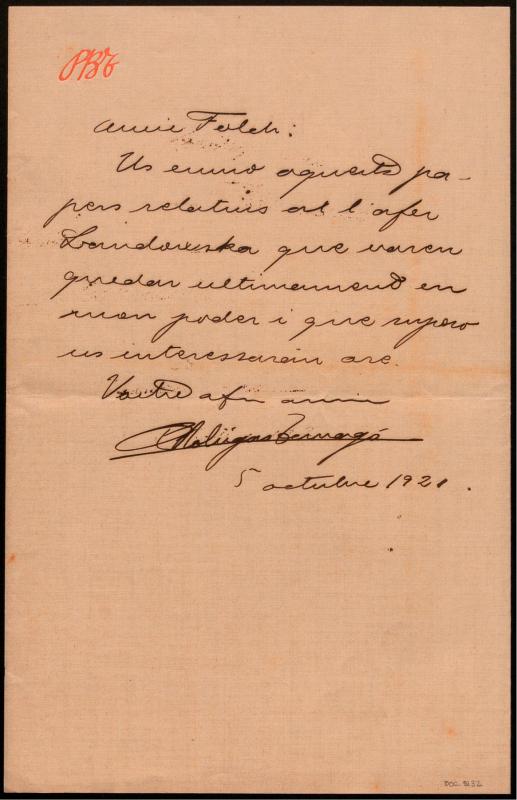 PBT
Amic Folch:
Us envio aquests pa-
pers relatius al l'afer
Landowska que varen
quedar ultimament en
mon poder i que suposo
us interessarán are.
Vostre afm amic
5 octubre 1921.
DOC 3132